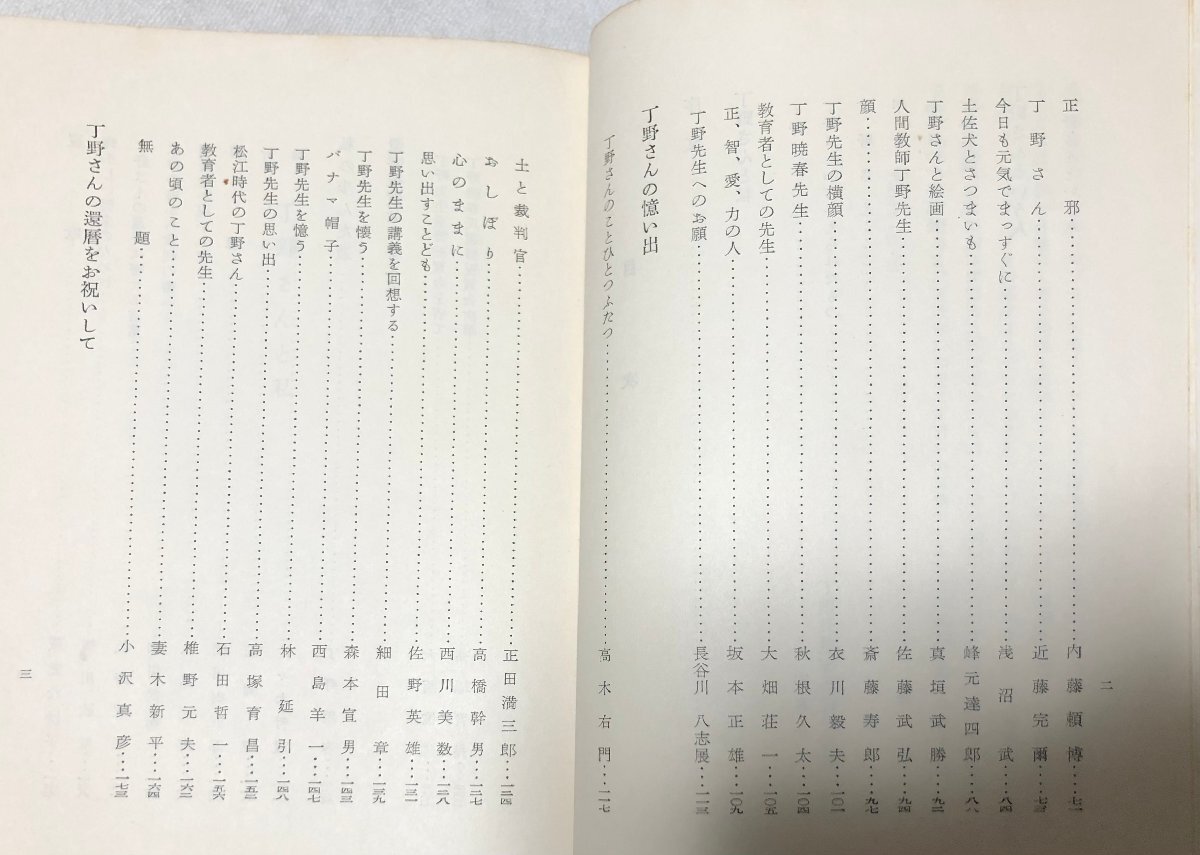 二
正邪……内藤頼博…七一
丁野さん……近藤完爾…七三
今日も元気でまっすぐに……浅沼武…八四
土佐犬とさつまいも……峰元達四郎…八八
丁野さんと絵画……真垣武勝…九二
人間教師丁野先生……佐藤武弘…九四
顔……斎藤寿郎…九七
丁野先生の横顔……衣川毅夫…一〇一
丁野暁春先生……秋根久太…一〇四
教育者としての先生……大畑荘一…一〇五
正、智、愛、力の人……坂本正雄…一〇九
丁野先生へのお願……長谷川八志展…一一三
丁野さんの憶い出
丁野さんのことひとつふたつ……高木右門…一一七
土と裁判官……正田満三郎…一二四
おしぼり……高橋幹男…一二七
心のままに……西川美数…一二八
思い出すことども……佐野英雄…一三一
丁野先生の講義を回想する……細田章…一三九
丁野先生を懐う……森本宣男…一四三
パナマ帽子……西島羊一…一四七
丁野先生を憶う……林延引…一四八
丁野先生の思い出……高塚育昌…一五二
松江時代の丁野さん……石田哲一…一五六
教育者としての先生……椎野元夫…一六二
あの頃のこと……妻木新平…一六四
無題……小沢真彦…一七三
丁野さんの還暦をお祝いして
三